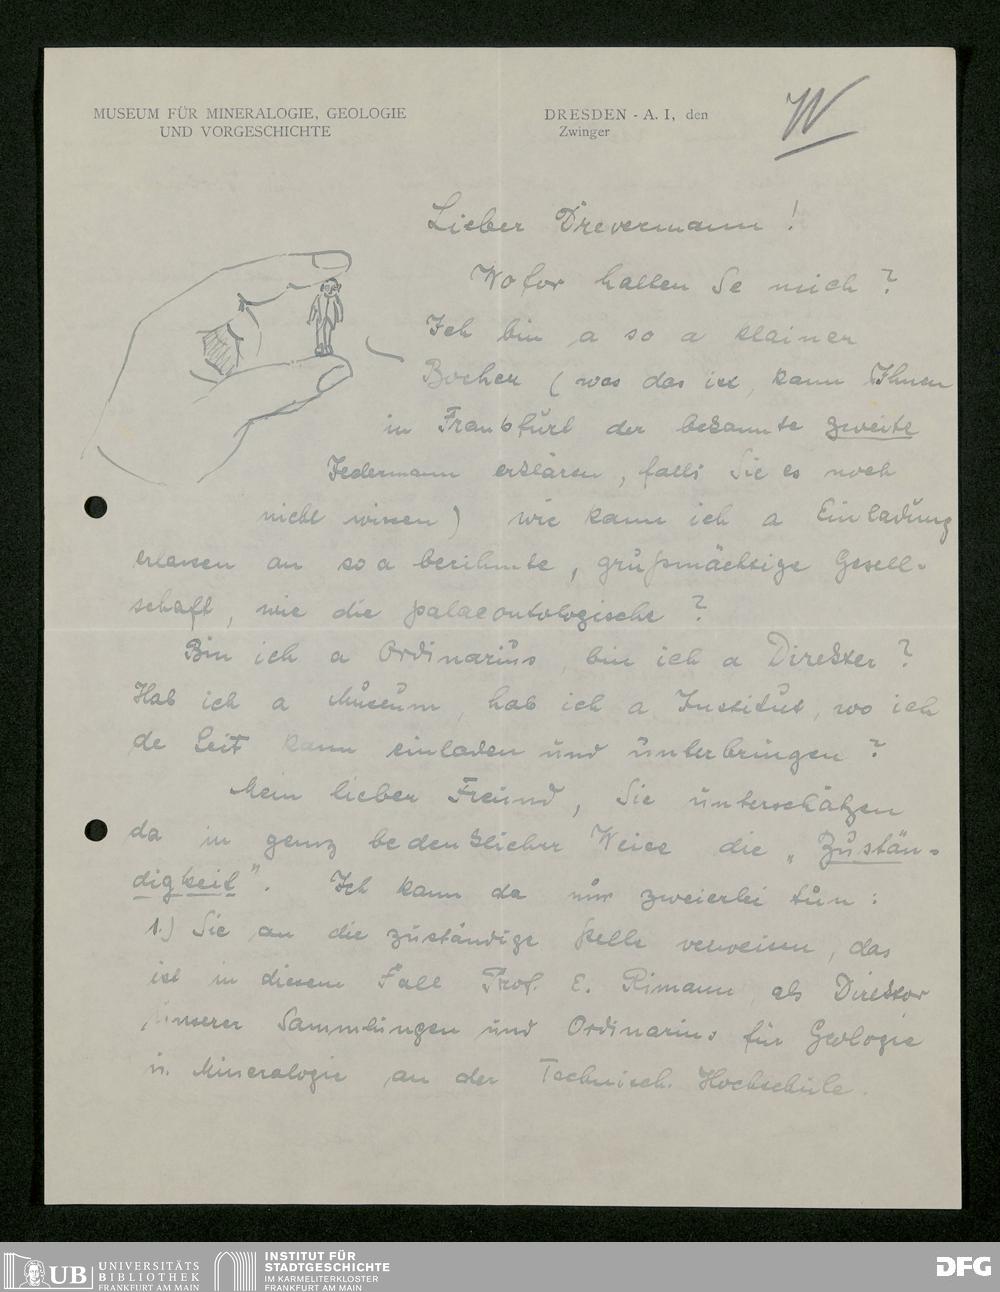 MUSEUM FÜR MINERALOGIE, GEOLOGIE
UND VORGESCHICHTE
DRESDEN - A. I, den
Zwinger
W
Lieber Drevermann!
Wofor halten Se mich?
Ich bin a so a klainer
Bocher (was das ist, kann Ihnen
in Frankfurt der bekannte zweite
Jedermann erklären, falls Sie es noch
nicht wissen) wie kann ich a Einladung
erlassen an so a berihmte, grußmächtige Gesell-
schaft, wie die palaeontologische?
Bin ich a Ordinarius, bin ich a Direkter?
Hab ich a Museum, hab ich a Institut, wo ich
de Leit kann einladen und unterbringen?
Mein lieber Freund, Sie unterschätzen
da in ganz bedenklicher Weise die „Zustän-
digkeit". Ich kann da nur zweierlei tun:
1.) Sie an die zuständige Stelle verweisen, das
ist in diesem Fall Prof. E. Rimann als Direktor
unserer Sammlungen und Ordinarius für Geologie
u. Mineralogie an der Technisch. Hochschule.
UB UNIVERSITÄTS
BIBLIOTHEK
FRANKFURT AM MAIN
INSTITUT FÜR
STADTGESCHICHTE
IM KARMELITERKLOSTER
FRANKFURT AM MAIN
DFG